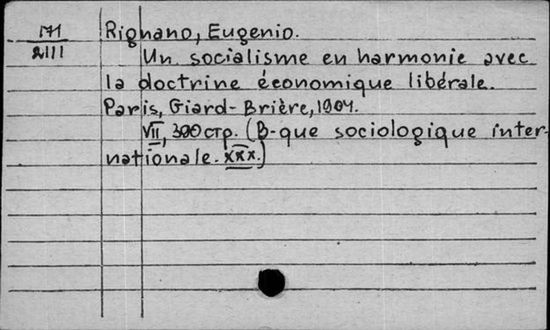 171 Rignano, Eugenio.
2111 Un socialisme en harmonie avec
la doctrine économique libérale.
Paris, Giard-Brière, 1904.
VII, 390 стр. (B-que sociologique inter-
nationale. XXX.)